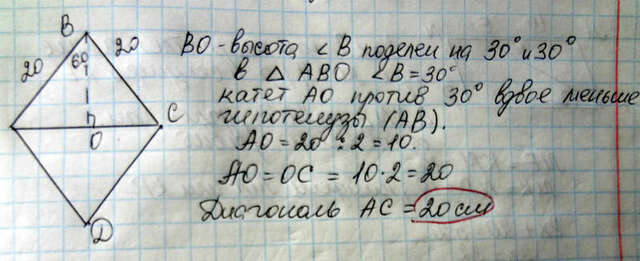 B
20
20
60
C
O
D
BO - высота ∠B поделен на 30° и 30°
в △ ABO ∠B = 30°
катет AO против 30° вдвое меньше
гипотенузы (AB).
AO = 20 : 2 = 10.
AO = OC = 10·2 = 20
Диагональ AC = 20 см